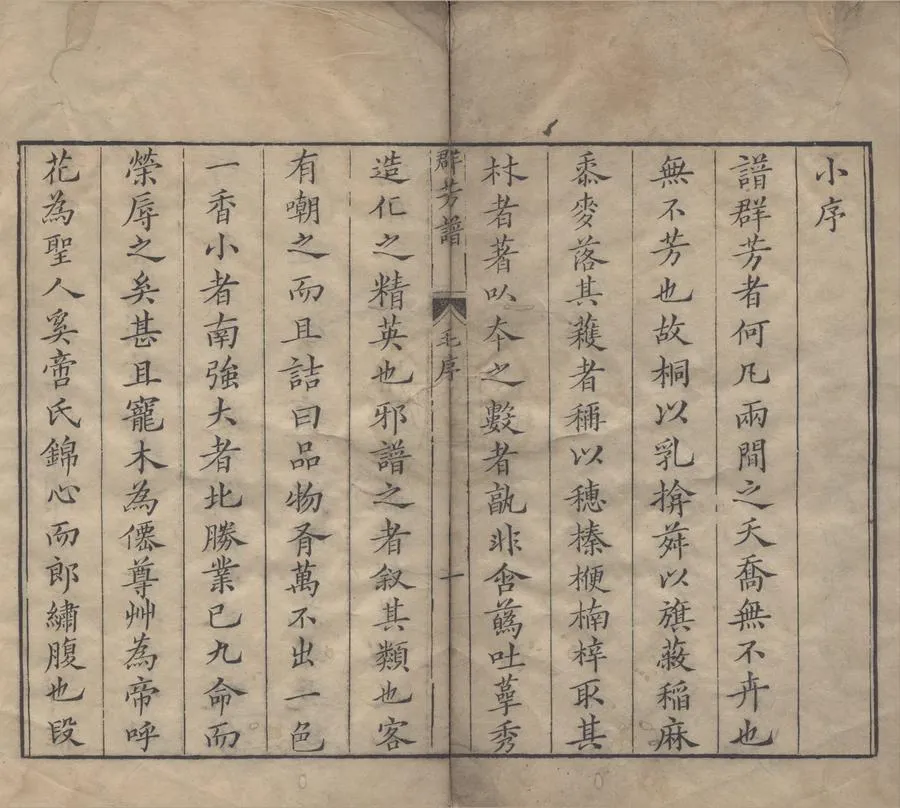 小序
譜群芳者何凡兩間之夭喬無不卉也
無不芳也故桐以乳揜荈以旗蔽稻麻
黍麥落其穫者稱以穗榛楩楠梓取其
材者著以本之數者孰非含蘤吐蕚秀
群芳譜 毛序 一
造化之精英也邪譜之者叙其類也客
有嘲之而且詰曰品物胥萬不出一色
一香小者南強大者北勝業已九命而
榮辱之矣甚且寵木為僊尊艸為帝呼
花為聖人奚啻氏錦心而郎繡腹也段